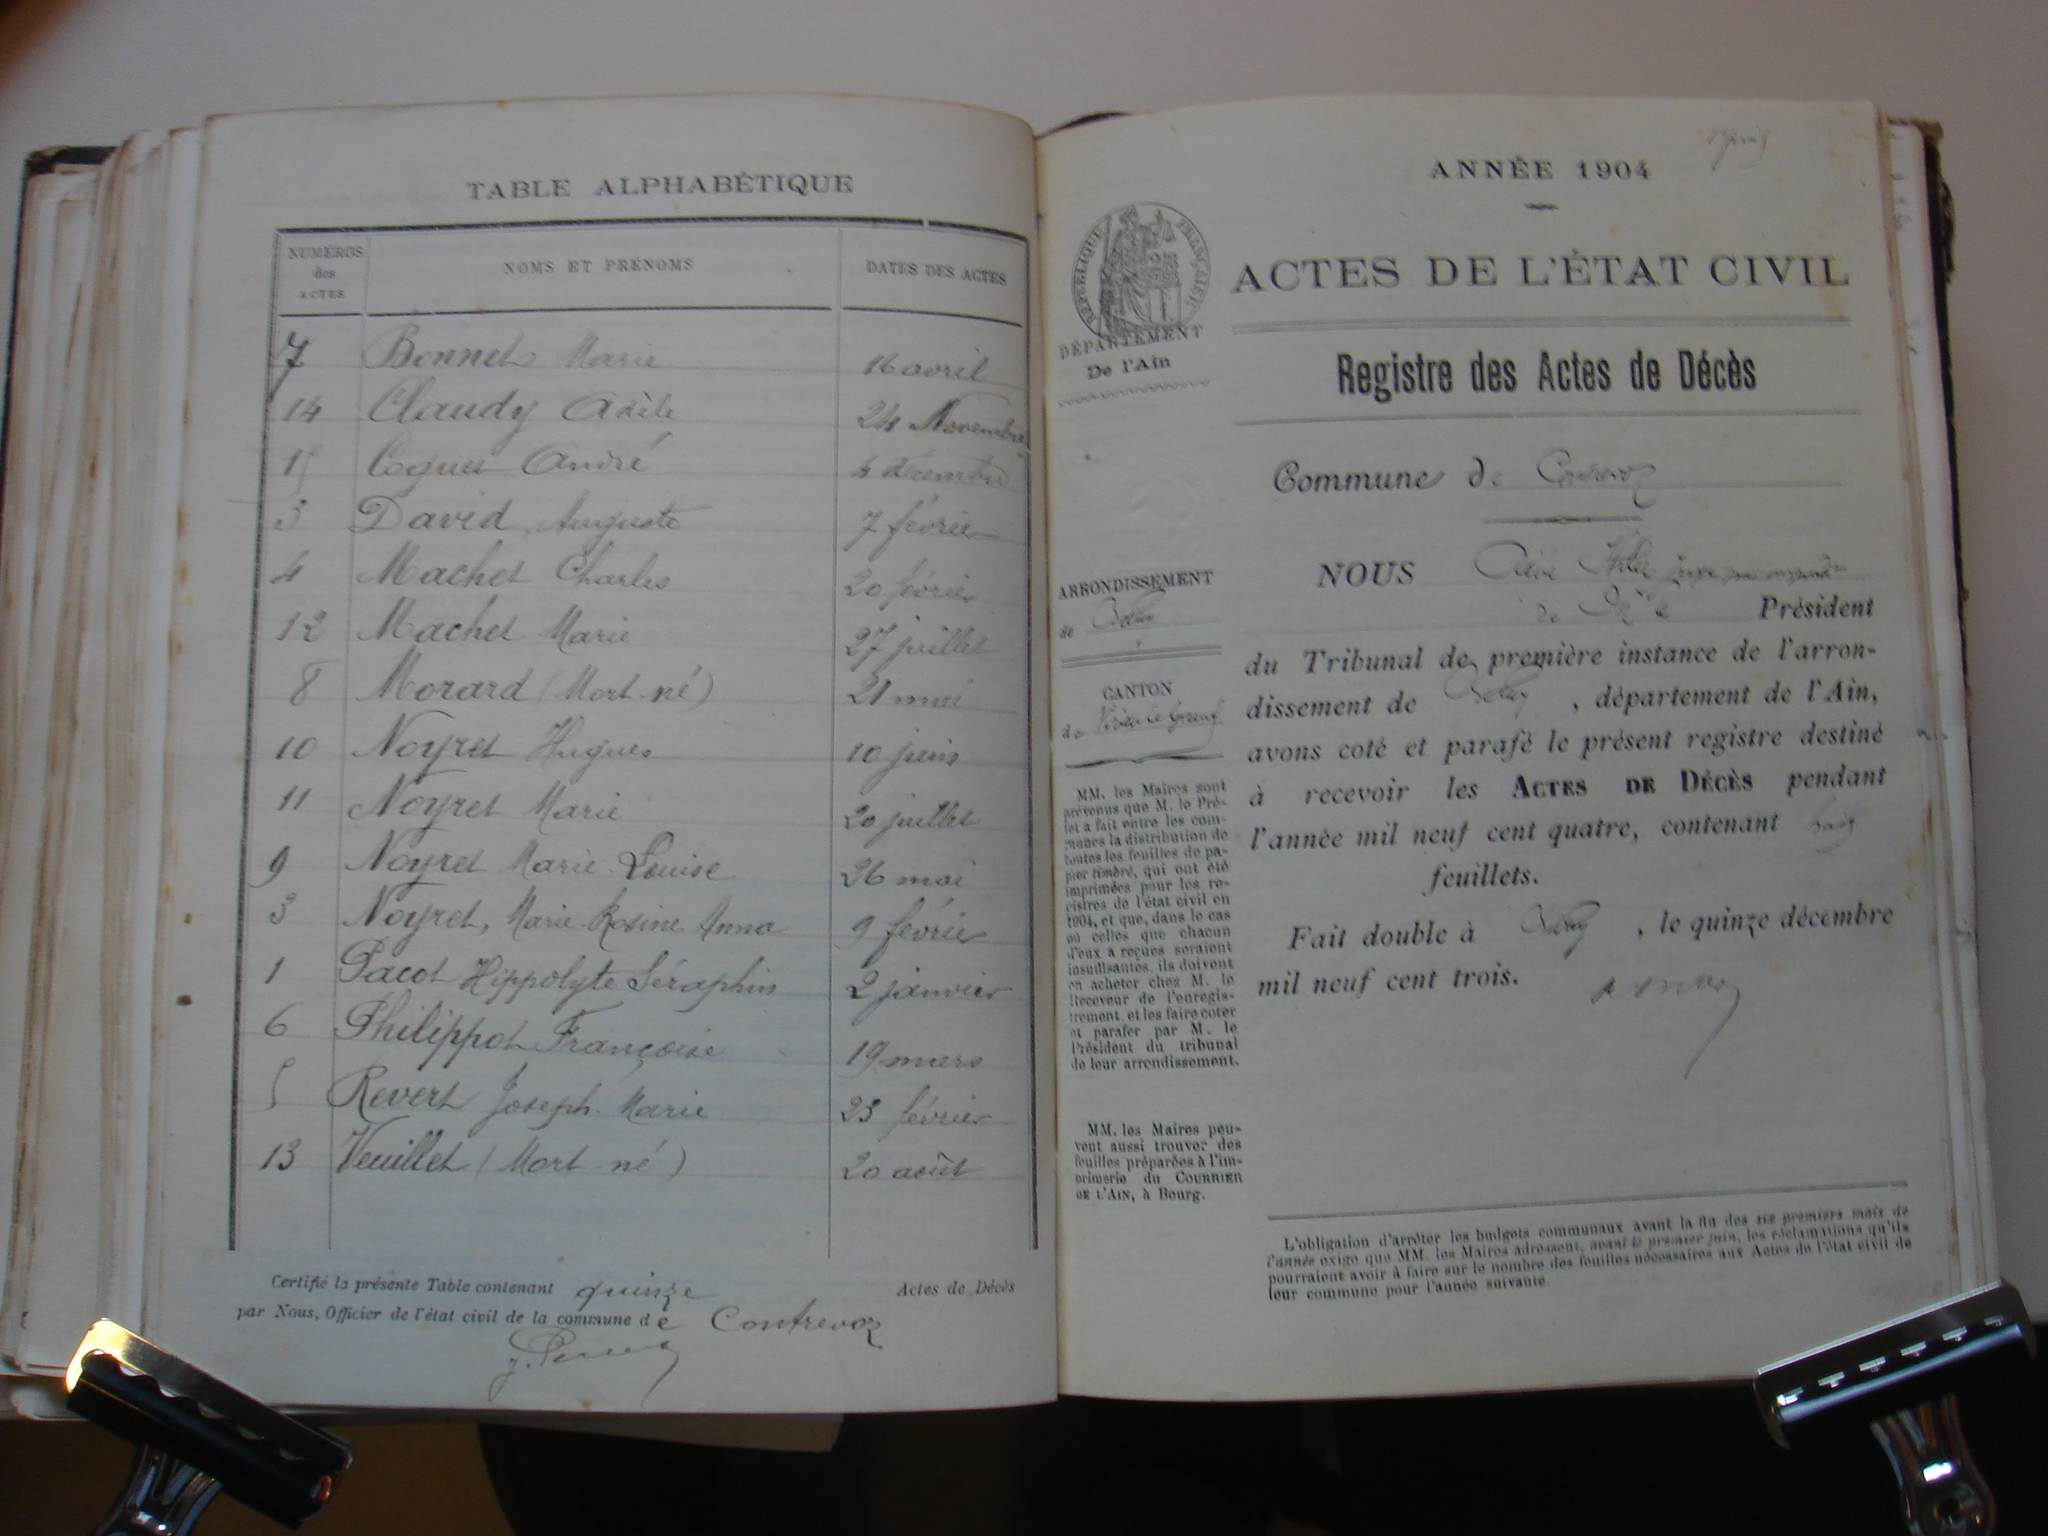 TABLE ALPHABÉTIQUE
NUMÉROS des ACTES NOMS ET PRÉNOMS DATES DES ACTES
7 Bonnet Marie 16 avril
14 Claudy Adèle 24 Novembre
15 André 4 décembre
3 David, Auguste 7 février
4 Machet Charles 20 février
12 Machet Marie 27 juillet
8 Morard (Mort-né) 21 mai
10 Noyret Hugues 10 juin
11 Noyret Marie 20 juillet
9 Noyret Marie Louise 26 mai
3 Noyret, Marie-Rosine Anna 9 février
1 Pacot Hippolyte Séraphin 2 janvier
6 Philippot Françoise 19 mars
5 Revert Joseph-Marie 23 février
13 Veuillet (Mort-né) 20 août
Certifié la présente Table contenant quinze Actes de Décès
par Nous, Officier de l'état civil de la commune de Contrevoz
ANNÉE 1904
ACTES DE L'ÉTAT CIVIL
RÉPUBLIQUE FRANÇAISE
DÉPARTEMENT
De l'Ain
Registre des Actes de Décès
Commune de Contrevoz
ARRONDISSEMENT
de Belley
CANTON
de Virieu le Grand
MM. les Maires sont
prévenus que M. le Pré-
fet a fait entre les com-
munes la distribution de
toutes les feuilles de pa-
pier timbré, qui ont été
imprimées pour les re-
gistres de l'état civil en
1904, et que, dans le cas
où celles que chacun
d'eux a reçues seraient
insuffisantes, ils doivent
en acheter chez M. le
Receveur de l'enregis-
trement, et les faire coter
et parafer par M. le
Président du tribunal
de leur arrondissement.
MM. les Maires peu-
vent aussi trouver des
feuilles préparées à l'im-
primerie du COURRIER
DE L'AIN, à Bourg.
NOUS
Président
du Tribunal de première instance de l'arron-
dissement de Belley, département de l'Ain,
avons coté et parafé le présent registre destiné
à recevoir les ACTES DE DÉCÈS pendant
l'année mil neuf cent quatre, contenant
feuillets.
Fait double à Belley, le quinze décembre
mil neuf cent trois.
L'obligation d'arrêter les budgets communaux avant la fin des six premiers mois de
l'année exige que MM. les Maires adressent, avant le premier juin, les réclamations qu'ils
pourraient avoir à faire sur le nombre des feuilles nécessaires aux Actes de l'état civil de
leur commune pour l'année suivante.